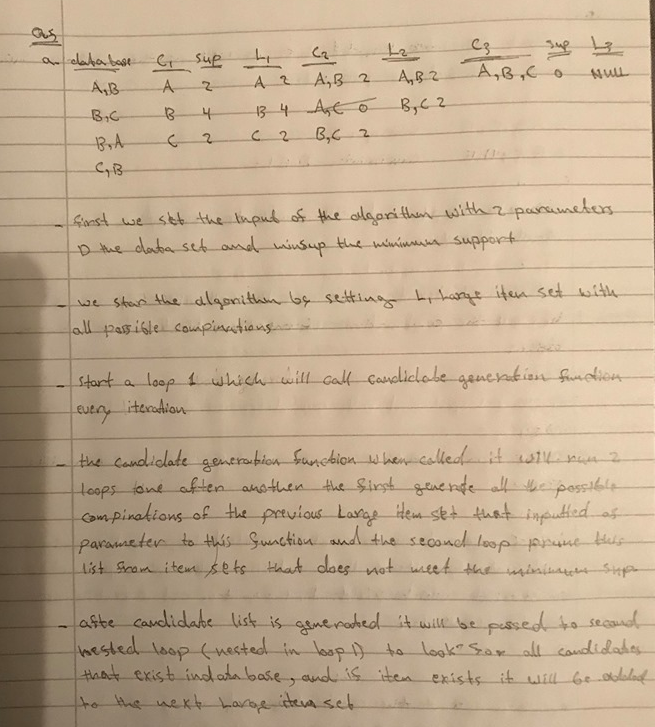 Q5
a- database C1 sup L1 C2 L2 C3 sup L3
A,B A 2 A 2 A,B 2 A,B 2 A,B,C 0 NULL
B,C B 4 B 4 A,C 0 B,C 2
B,A C 2 C 2 B,C 2
C,B
- first we set the input of the algorithm with 2 parameters
D the data set and minsup the minimum support
- we star the algorithm by setting L1 Large item set with
all possible compinations
- start a loop 1 which will call candidate generation function
every iteration
- the candidate generation function when called it will run 2
loops one after another the first generate all the possible
compinations of the previous Large item set that inputted as
parameter to this function and the second loop prune this
list from item sets that does not meet the minimum sup
- afte candidate list is generated it will be passed to second
nested loop (nested in loop 1) to look for all candidates
that exist indatabase, and if item exists it will be added
to the next Large item set